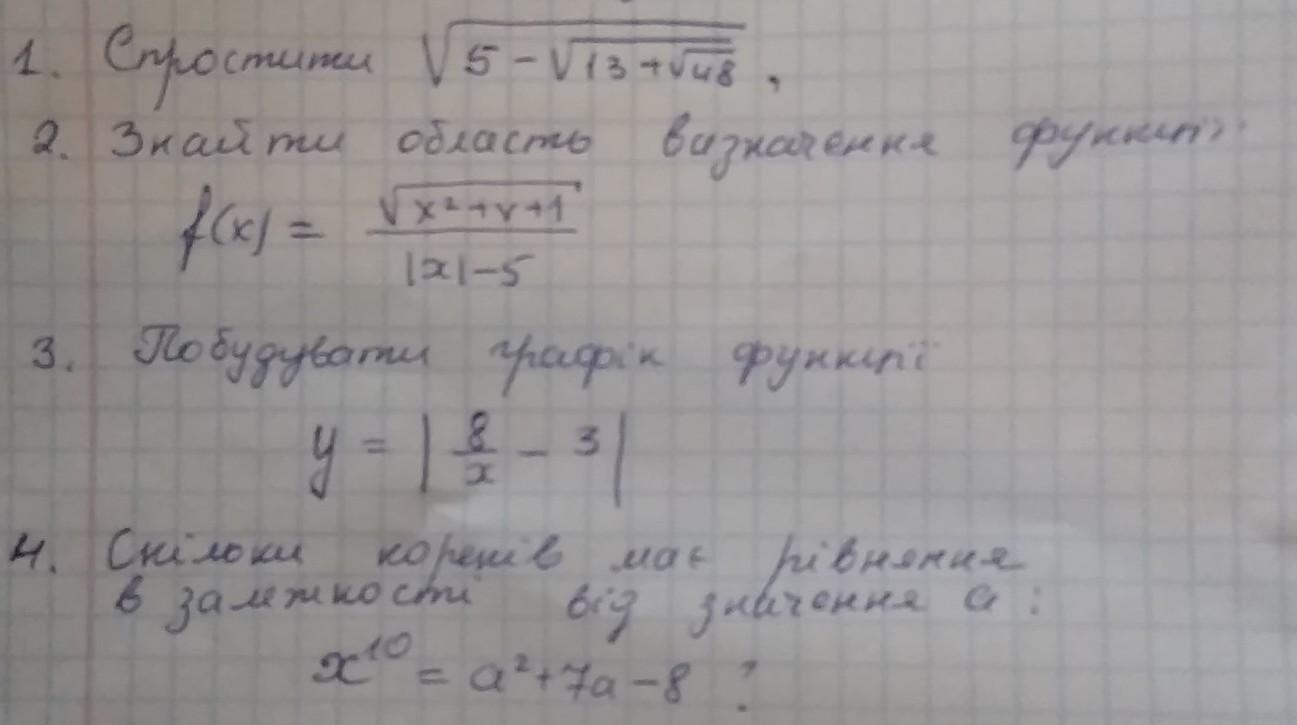 1. Спростити √(5 - √(13 + √48)),
2. Знайти область визначення функції
f(x) = √(x² + x + 1) / (|x| - 5)
3. Побудувати графік функції
y = | 8/x - 3 |
4. Скільки коренів має рівняння
в залежності від значення a:
x¹⁰ = a² + 7a - 8 ?